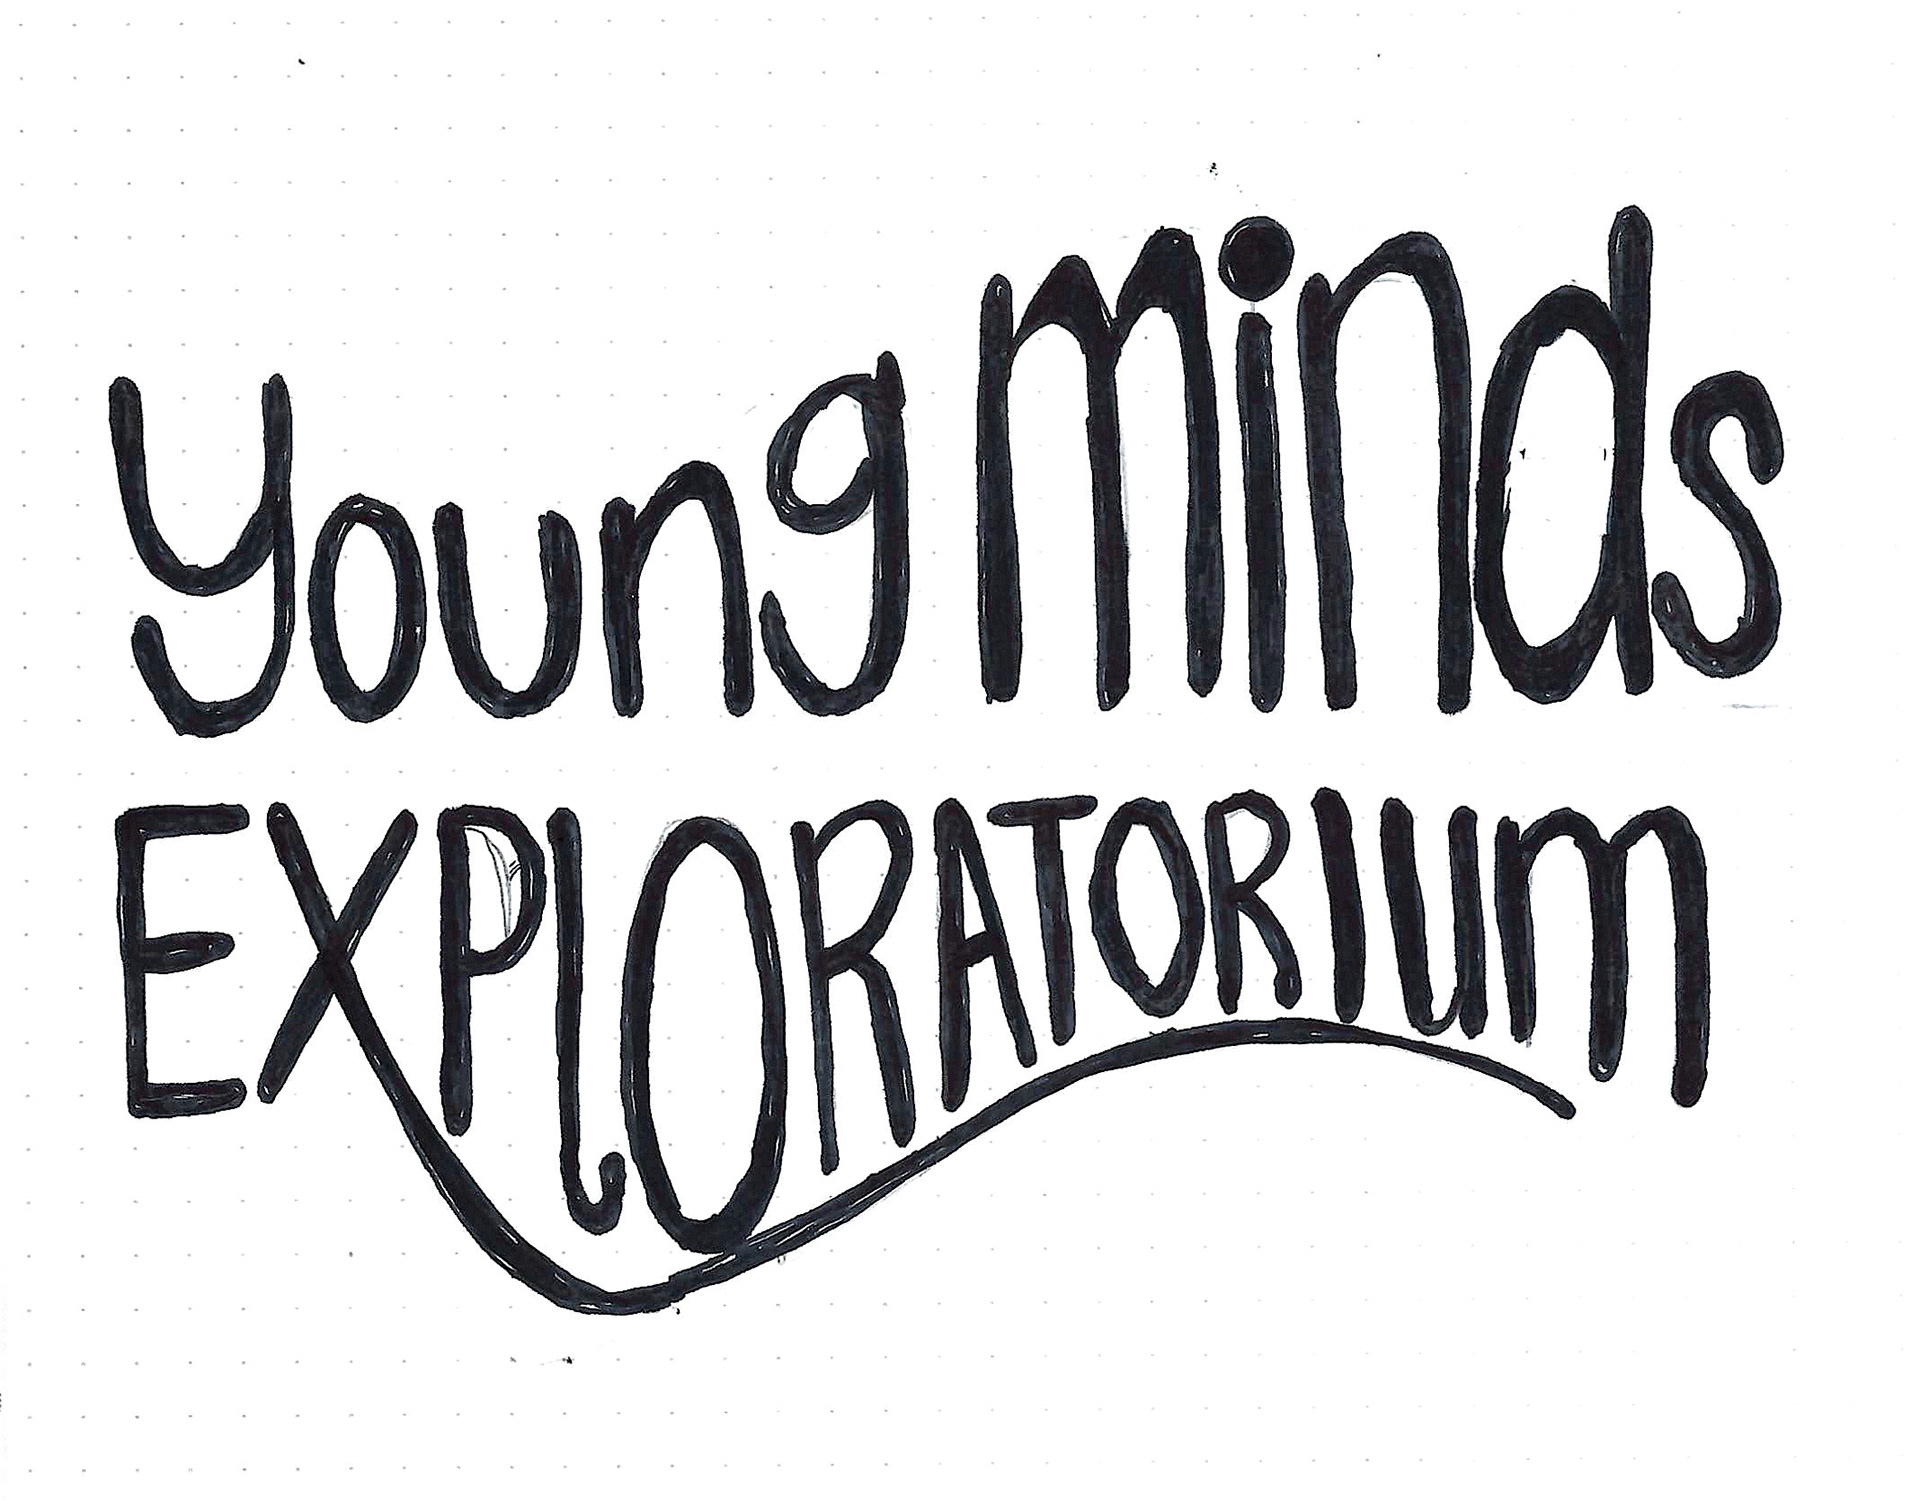 young minds
EXPlORATORIUm